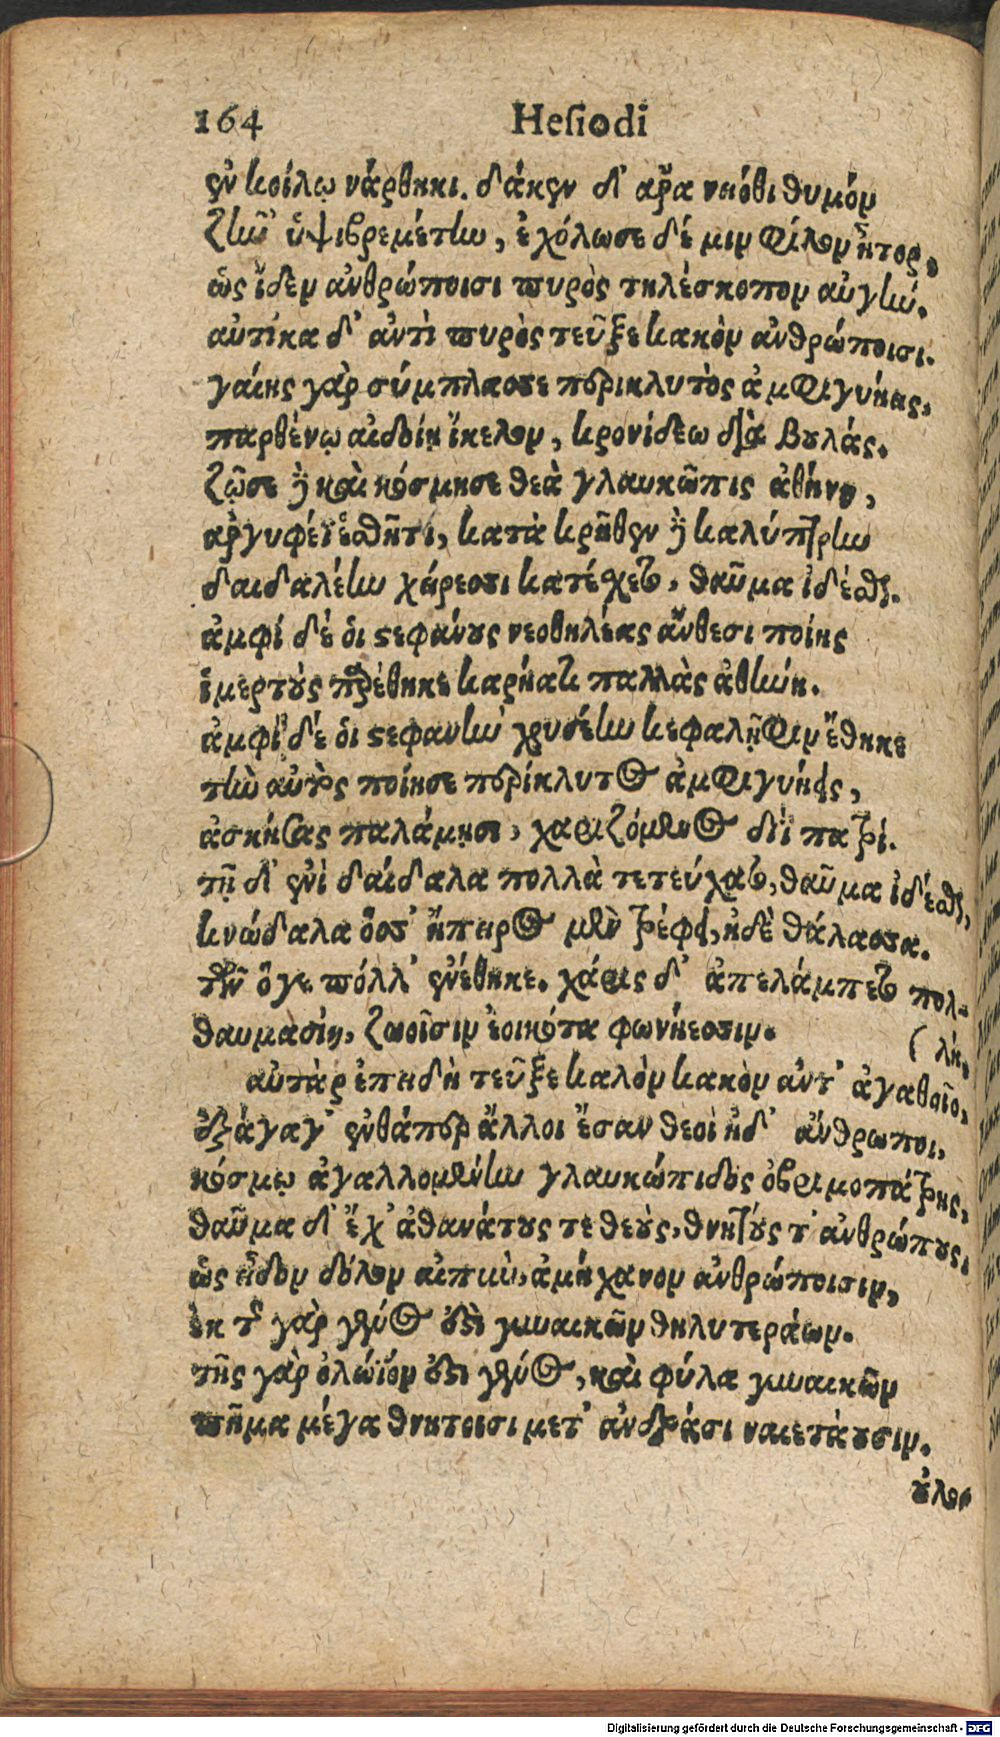 164 Hesiodi
ἐν κοίλῳ νάρθηκι. δάκεν δ' ἄρα νειόθι θυμόν
ζην' ὑψιβρεμέτην, ἐχόλωσε δέ μιν φίλον ἦτορ,
ὡς ἴδεν ἀνθρώποισι πυρὸς τηλέσκοπον αὐγήν.
αὐτίκα δ' ἀντὶ πυρὸς τεῦξε κακὸν ἀνθρώποισι.
γαίης γὰρ σύμπλασσε περικλυτὸς ἀμφιγυήεις,
παρθένῳ αἰδοίῃ ἴκελον, κρονίδεω διὰ βουλάς.
ζῶσε δὲ καὶ κόσμησε θεὰ γλαυκῶπις ἀθήνη,
ἀργυφέῃ ἐσθῆτι, κατὰ κρῆθεν δὲ καλύπτρην
δαιδαλέην χείρεσσι κατέσχεθε, θαῦμα ἰδέσθαι.
ἀμφὶ δέ οἱ στεφάνους νεοθηλέας ἄνθεσι ποίης
ἱμερτοὺς παρέθηκε καρήατι παλλὰς ἀθήνη.
ἀμφὶ δέ οἱ στεφανην χρυσέην κεφαλῆφιν ἔθηκε
τὴν αὐτὸς ποίησε περίκλυτος ἀμφιγυήεις,
ἀσκήσας παλάμησι, χαριζόμενος διῒ πατρί.
τῇ δ' ἐνὶ δαίδαλα πολλὰ τετεύχατο, θαῦμα ἰδέσθαι,
κνώδαλα ὅσσ' ἤπειρος μὲν τρέφει, ἠδὲ θάλασσα.
τῶν ὅγε πόλλ' ἐνέθηκε. χάρις δ' ἀπελάμπετο πολ-
θαυμασίη, ζωοῖσιν ἐοικότα φωνήεσσιν. (λὴ,
αὐτὰρ ἐπειδὴ τεῦξε καλὸν κακὸν ἀντ' ἀγαθοῖο,
ἐξάγαγ' ἐνθάπερ ἄλλοι ἔσαν θεοὶ ἠδ' ἄνθρωποι,
κόσμῳ ἀγαλλομένην γλαυκώπιδος ὀβριμοπάτρης,
θαῦμα δ' ἔχ' ἀθανάτους τε θεοὺς, θνητούς τ' ἀνθρώπους,
ὡς εἶδον δόλον αἰπὺν, ἀμήχανον ἀνθρώποισιν,
ἐκ τῆς γὰρ γένος ἐστὶ γυναικῶν θηλυτεράων.
τῆς γὰρ ὀλώϊόν ἐστι γένος, καὶ φύλα γυναικῶν
πῆμα μέγα θνητοισι μετ' ἀνδράσι ναιετάουσιν.
οὐλο
Digitalisierung gefördert durch die Deutsche Forschungsgemeinschaft - DFG